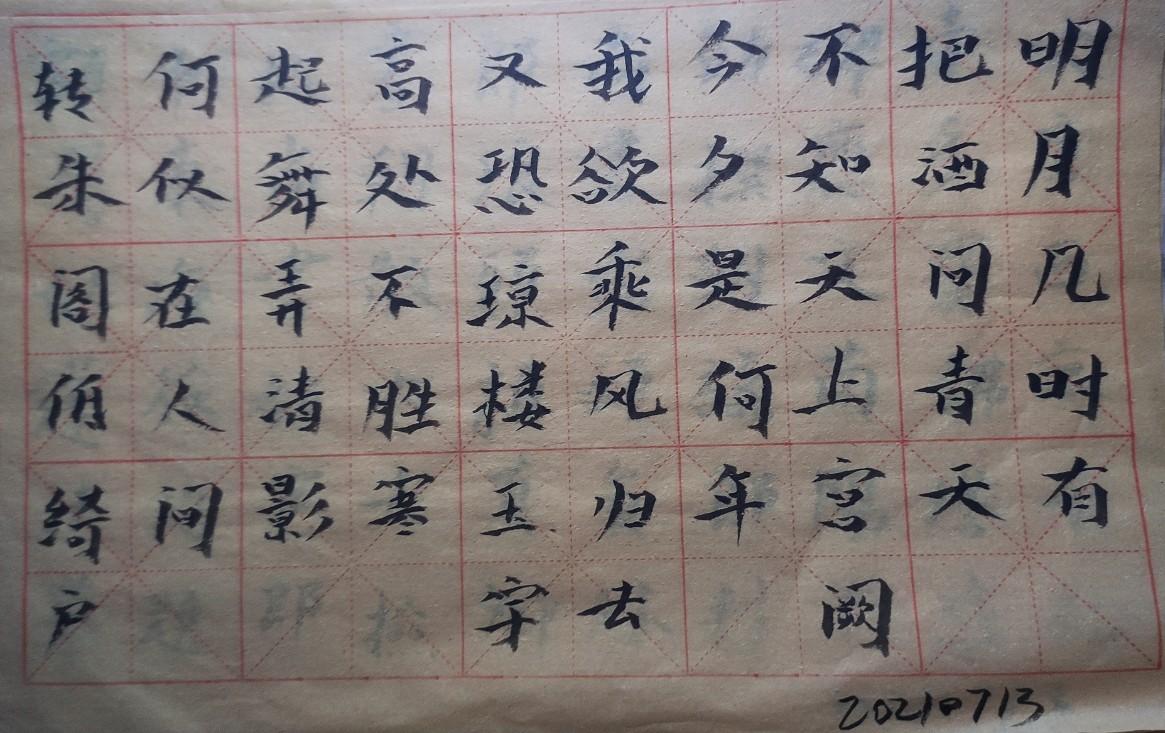 明月几时有
把酒问青天
不知天上宫阙
今夕是何年
我欲乘风归去
又恐琼楼玉宇
高处不胜寒
起舞弄清影
何似在人间
转朱阁俏绮户
20210713